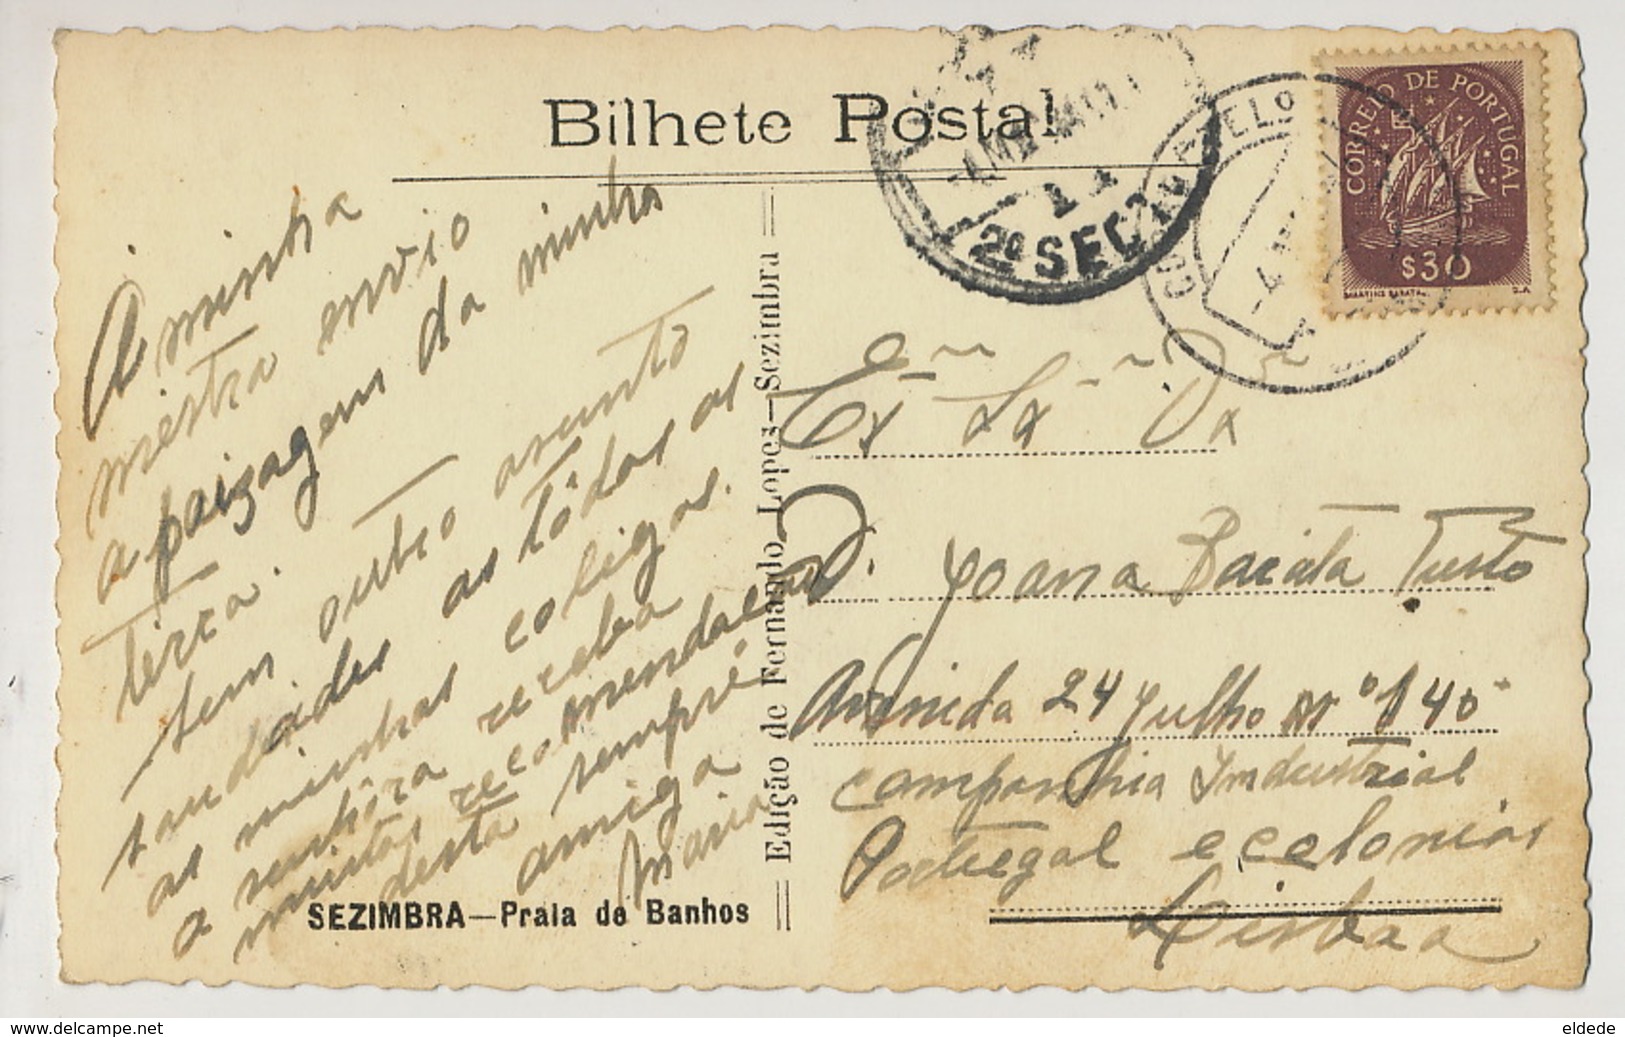 Bilhete Postal
CORREIO DE PORTUGAL
$30
2ª SEC
Á minha
mestra envio
a paizagem da minha
terra.
sem outro asunto
saudaides as tôdas as
as minhas coligas.
a senhôra receba
muitas recomendacão
desta sempre
amiga
Maria
SEZIMBRA—Praia de Banhos
Edição de Fernando Lopes—Sezimbra
Ex Sr D
D. Joana Barata Tusto
Avenida 24 Julho Nº 140
companhia Industrial
Portugal e colonias
Lisboa
www.delcampe.net
eldede